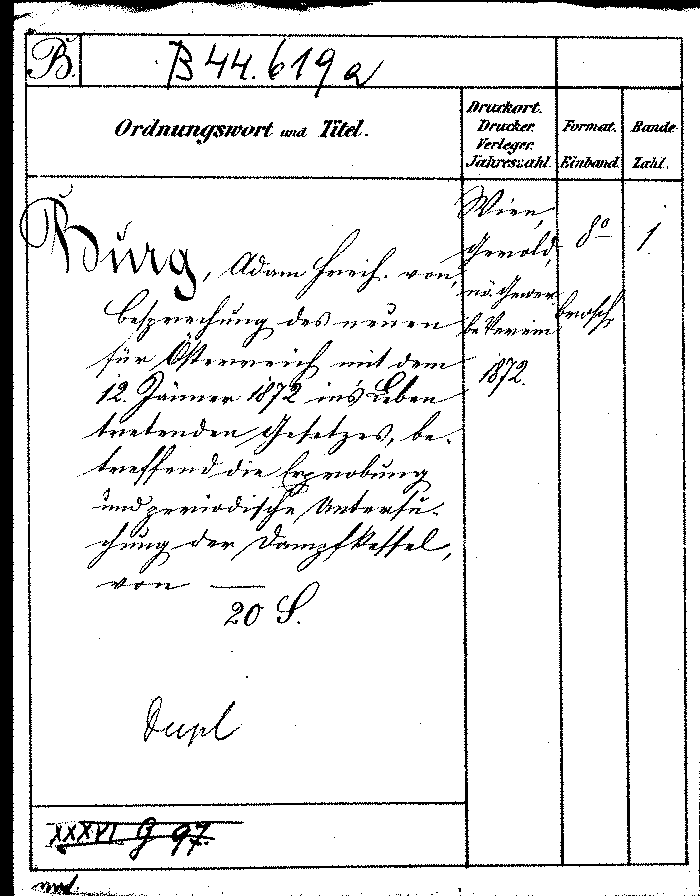 B.
B 44.619 a
Ordnungswort und Titel.
Druckort.
Drucker.
Verleger.
Jahreszahl.
Format.
Einband.
Bände
Zahl.
Burg, Adam Freih. von,
Besprechung des neuen
für Österreich mit dem
12. Jänner 1872 in's Leben
tretenden Gesetzes, be-
treffend die Erprobung
und periodische Untersu-
chung der Dampfkessel,
von —
20 S.
Wien,
Gerold,
nö. Gewer
be Verein
1872.
8o
brosch.
1.
Dupl
XXXVI G 97.